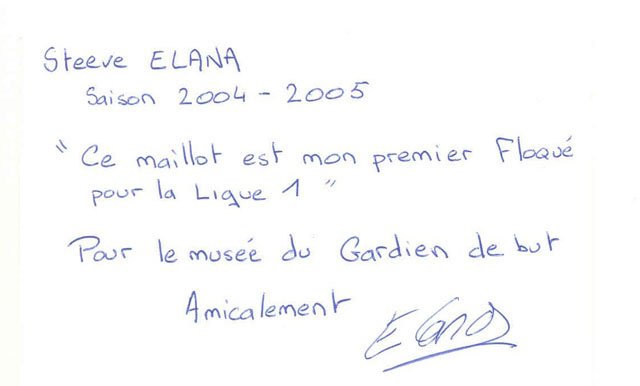 Steeve ELANA
Saison 2004 - 2005
" Ce maillot est mon premier Floqué
pour la Ligue 1 "
Pour le museé du Gardien de but
Amicalement
Elana